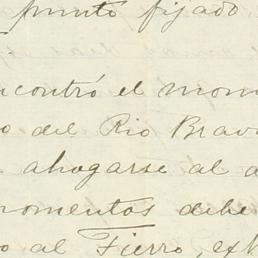 punto fijado
ncontró el mom
o del Rio Brav
ahogarse al a
momentos debe
o al Fierro, ext